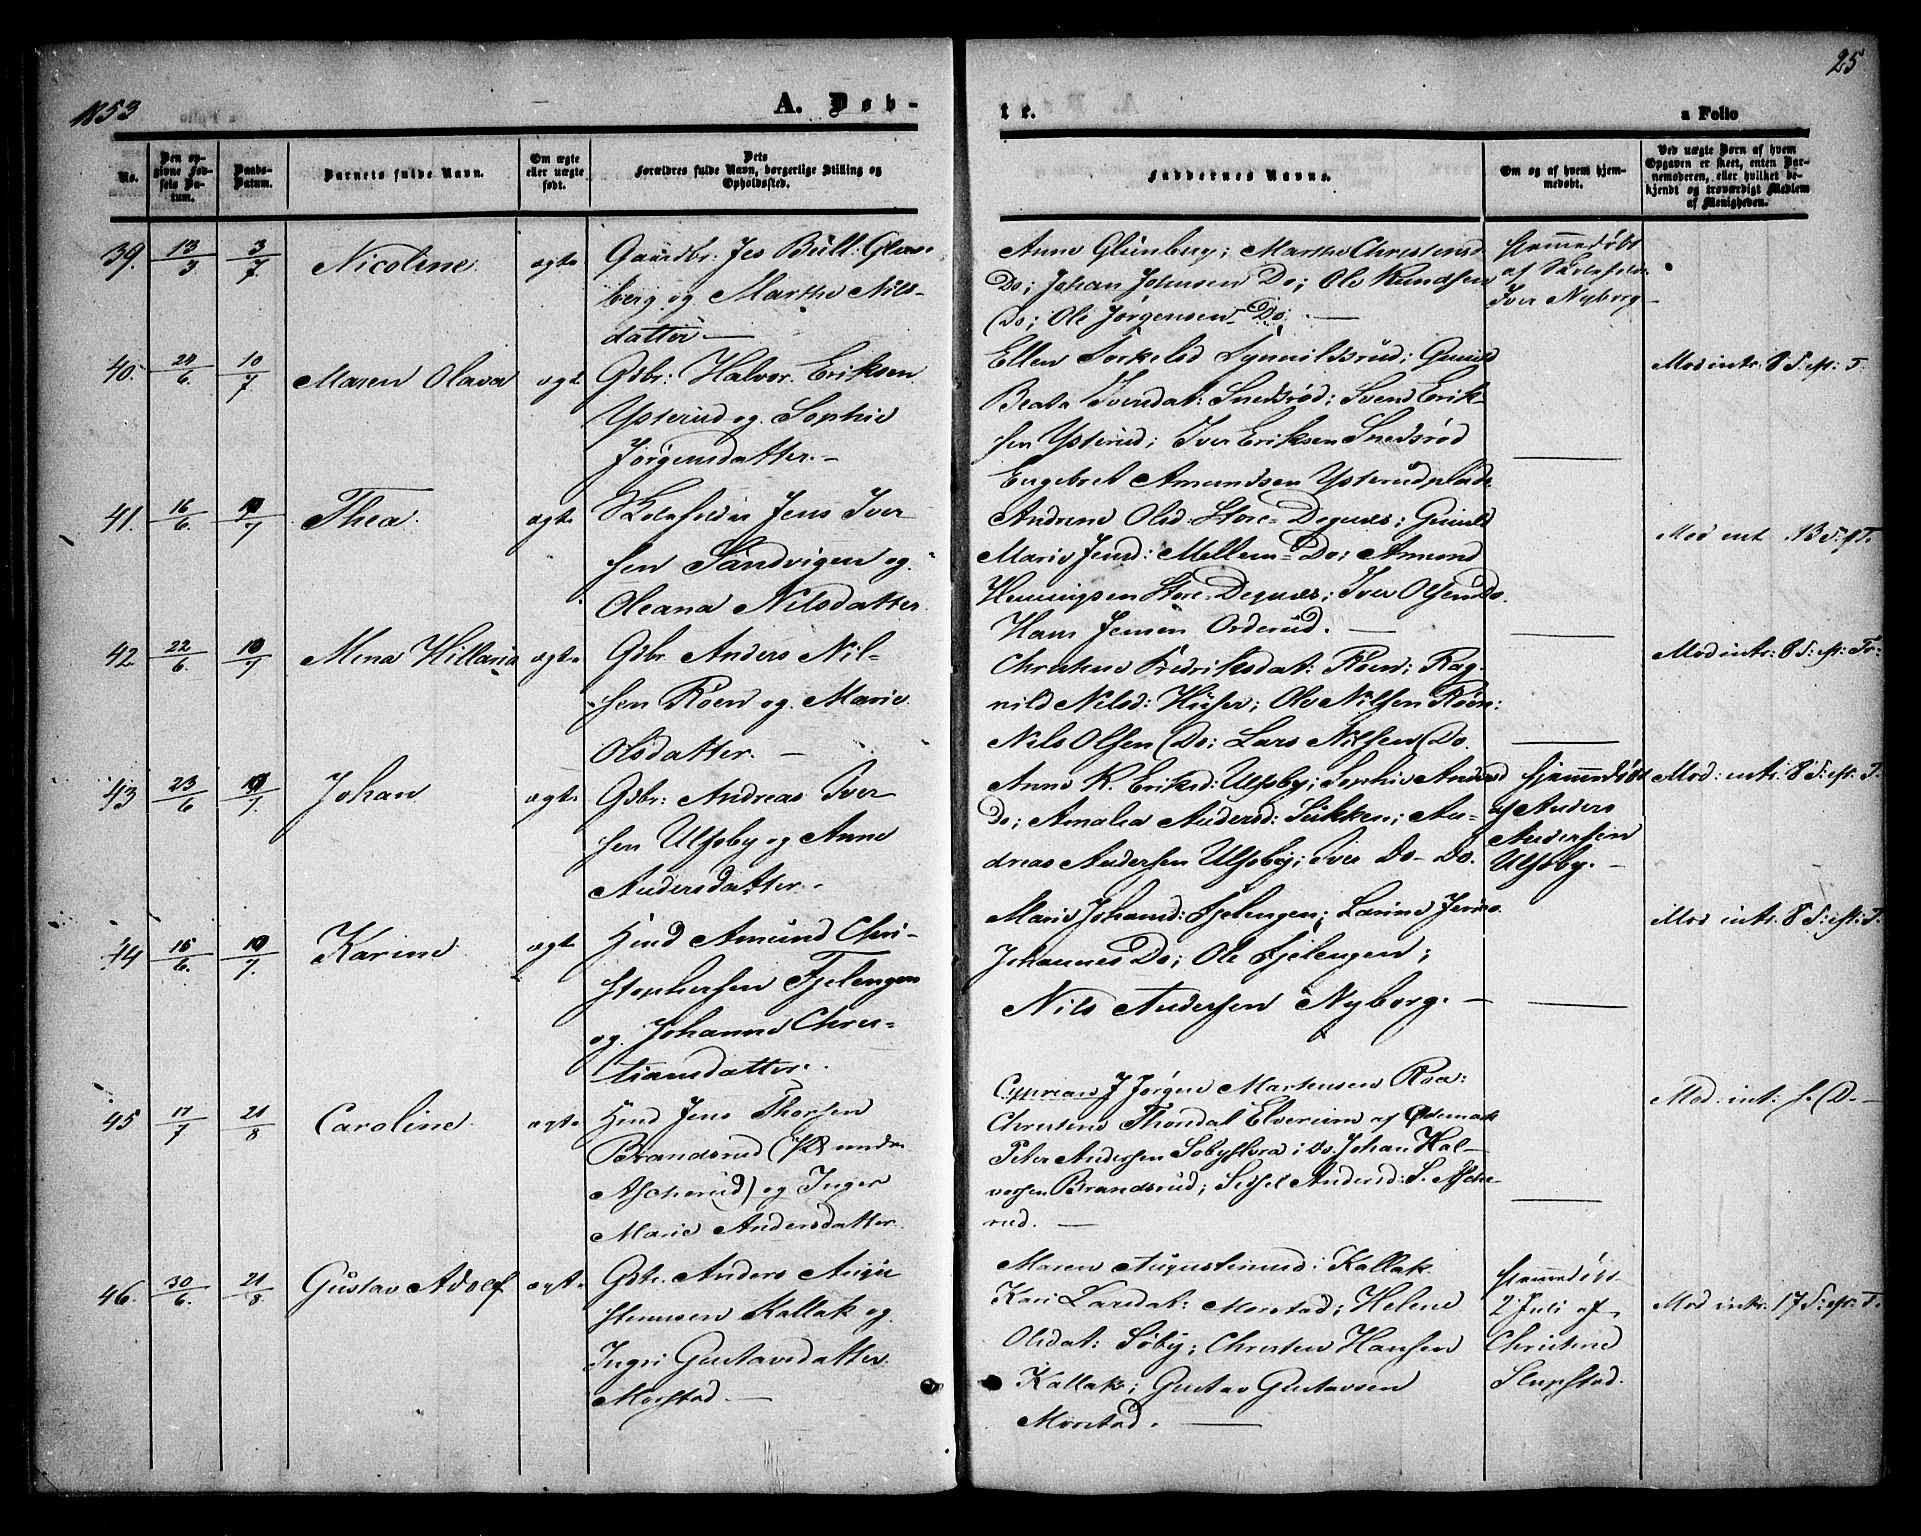 1853
A. Døb-
te.
a Folio
25
No.
Den op-
givne Fød-
sels Da-
tum.
Daabs-
Datum.
Barnets fulde Navn.
Om ægte
eller uægte
født.
Dets
Forældres fulde Navn, borgerlige Stilling og
Opholdssted.
Faddernes Navne.
Om og af hvem hjem-
medøbt.
Ved uægte Børn af hvem
Opgaven er skeet, enten Bar-
nemoderen, eller hvilket be-
kjendt og troværdigt Medlem
af Menigheden.
39. 13/3 3/7 Nicoline. ægte
Gaardbr: Jes Bull: Glens-
berg og Marthe Nils-
datter —
Anne Glensberg; Marthe Christensd
Do; Johan Johnsen Do; Ole Knudsen
Do; Ole Jørgensen Do. —
Hjemmedøbt
af
Iver Nyborg
40. 24/6 10/7 Maren Olava ægte
Gdbr: Halvor Eriksen
Ysterud og Sophie
Jørgensdatter. —
Ellen Torkelsd Gunnild
Beate Iversdat: Snedsrød; Svend Erik-
sen Ysterud; Iver Eriksen Snedsrød
Engebret Amundsen Ysterudplads
Mod intr: 8 S: eft: T.
41. 16/6 10/7 Thea. ægte
Jens Iver
sen Sandvigen og
Oleana Nilsdatter.
Andrine Olsd: Store-Degnæs; Gunild
Marie Jensd: Mellem-Do; Amund
Henningsen Store-Degnæs; Iver Olsen Do.
Hans Jensen Orderud. —
Mod int 13 S. e T.
42. 22/6 10/7 Mina Hillaria ægte
Gdbr. Anders Nil-
sen Røen og Marie
Olsdatter. —
Christine Fredriksdat: Røen; Rag-
nild Nilsd: Huser; Ole Nilsen Røen;
Nils Olsen Do; Lars Nilsen Do.
Mod intr: 8 S: eft: Tr:
43 23/6 10/7. Johan ægte
Gdbr: Andreas Iver
sen Ulfsby og Anne
Andersdatter. —
Anne K. Eriksd: Ulfsby; Sophie Andersd
Do; Amalia Andersd: Sukken; An-
dreas Andersen Ulfsby; Iver Do- Do.
Hjemmedøbt
af Anders
Andersen
Ulfsby. —
Mod: intr: 8 S: eft: T.
44 15/6 10/7. Karine ægte
Hmd Amund Chri-
stophersen Fjelengen
og Johanne Chris-
tiansdatter.
Marie Johansd: Fjelengen; Larine Jens
Johannes Do; Ole Fjelengen;
Nils Andersen Nyborg. —
Mod intr: 8 S: eft: T.
45 17/7 21/8 Caroline. ægte
Hmd Jens Thorsen
Brandsrud (Pl under
Ascherud) og Inger
Marie Andersdatter.
Cyprian J Jørgen Martensen Roa:
Christens Thordal Elverum af Ødemark
Peter Andersen Sobystora i Do. Johan Hal-
vorsen Brandsrud; Sidsel Andersd: S. Asche-
rud. —
Mod: int: s. D. —
46. 30/6. 21/8. Gustav Adolf ægte.
Gdbr. Anders Augu
stenusen Kallak og
Ingri Gustavsdatter
Morstad. —
Maren Augustinusd: Kallak
Kari Larsdat: Morstad; Helene
Olsdat: Søby; Christen Hansen
Kallak; Gustav Gustavsen
Morstad. —
Hjemmedøbt
2 Juli af
Christine
Slupstad.
Mod intr: 17 S: eft: T.